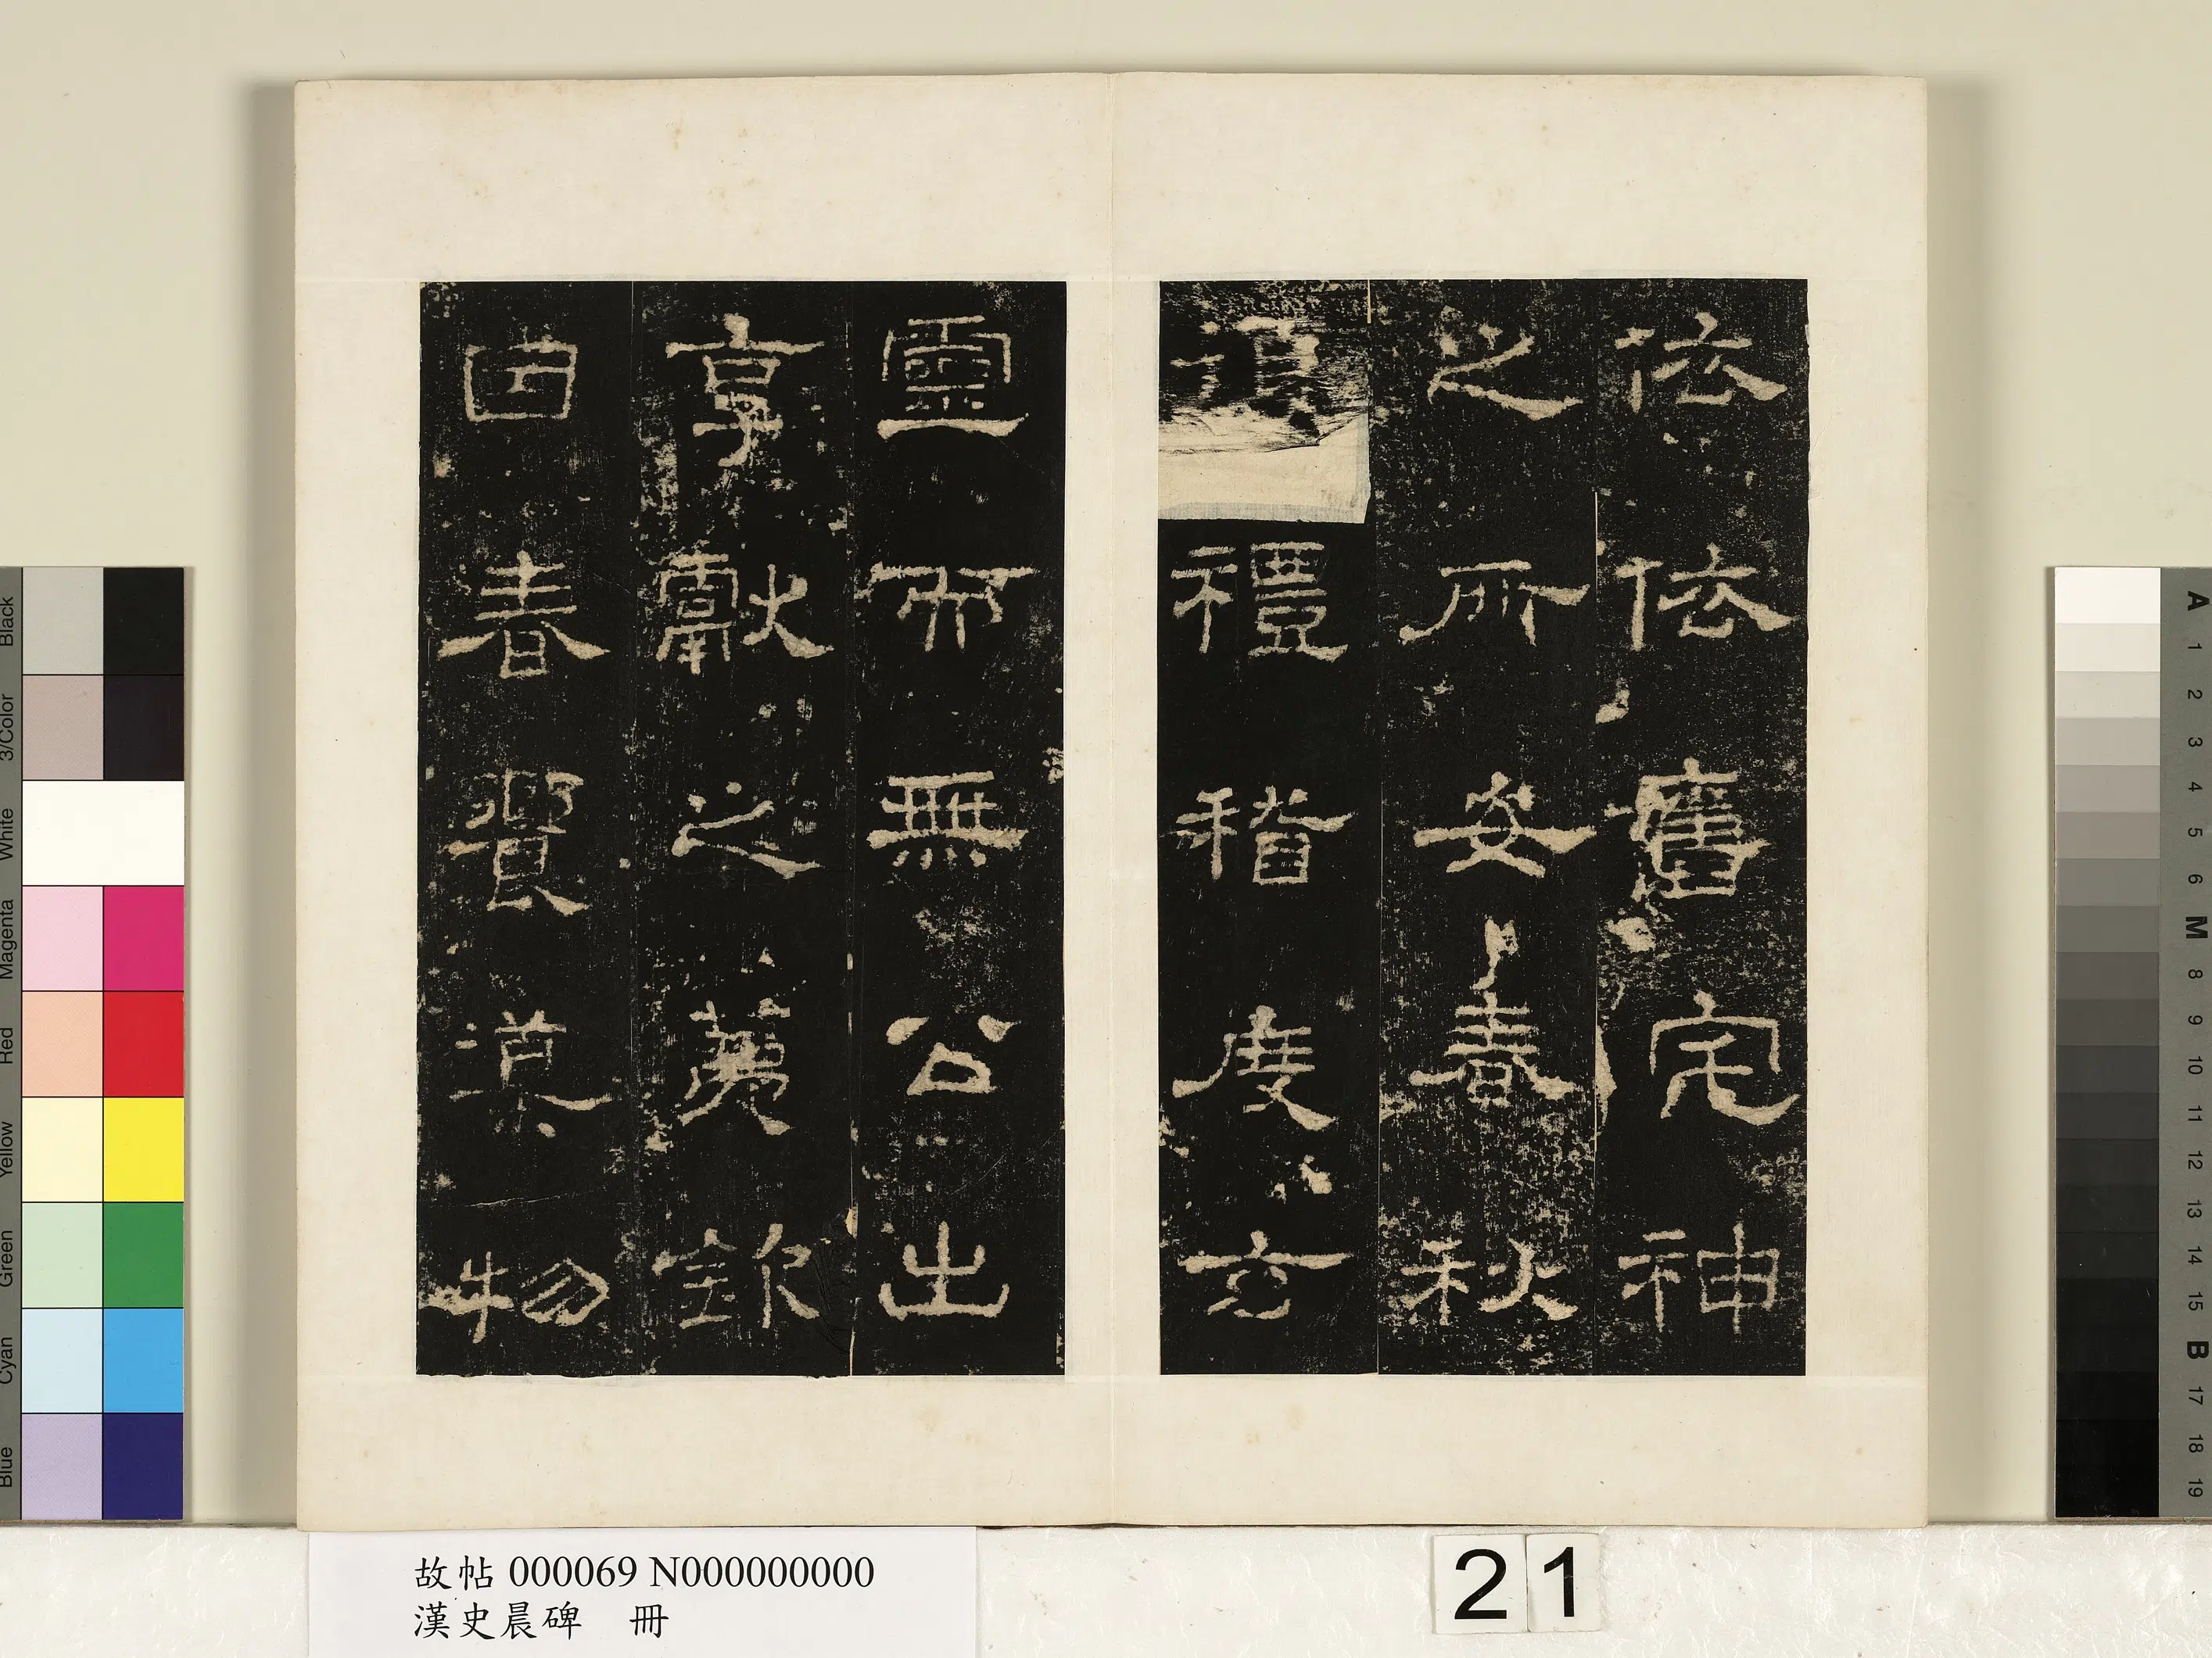 依依舊宅神
之所安春秋
禮稽度玄
靈而無公出
享獻之薦欽
因春饗導物
故帖 000069 N000000000
漢史晨碑 冊
21
Black
3/Color
White
Magenta
Red
Yellow
Green
Cyan
Blue
A
1
2
3
4
5
6
M
8
9
10
11
12
13
14
15
B
17
18
19